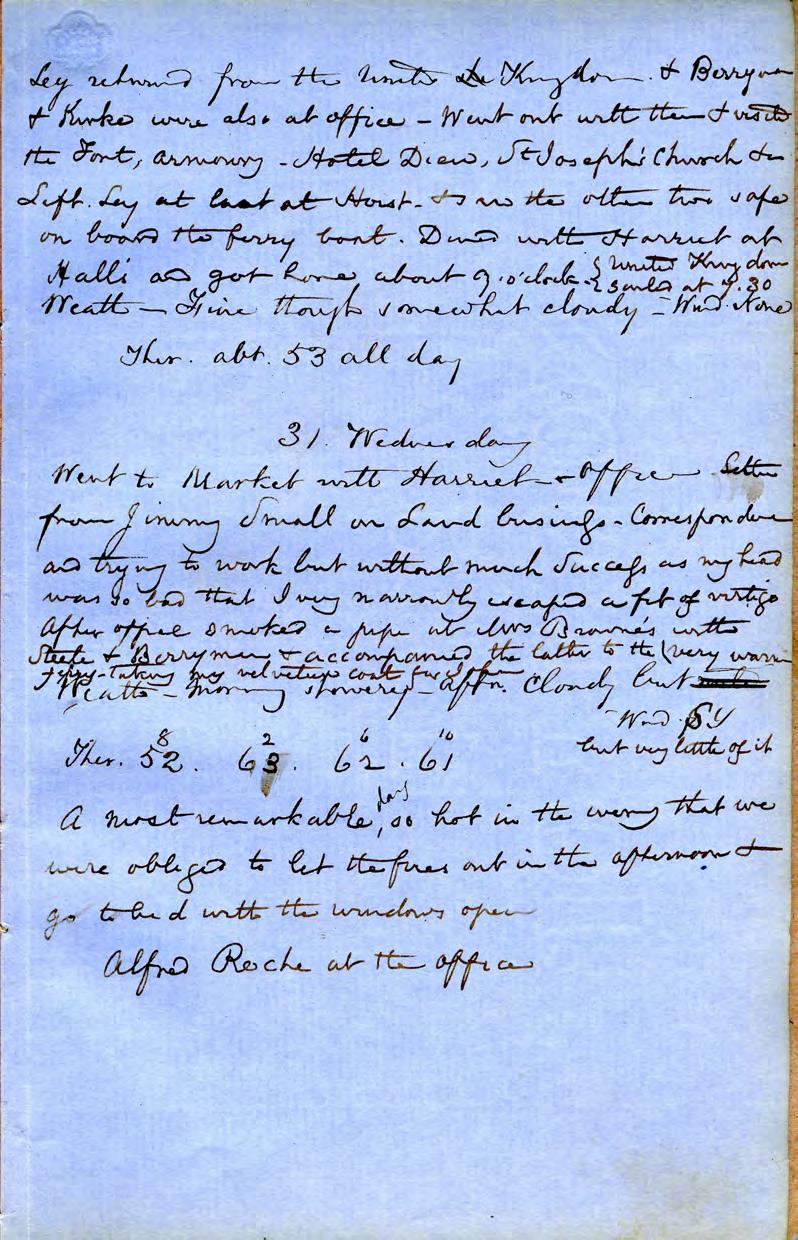 Ley returned from the United Kingdom. & Berryman
& Kirke were also at office - Went out with them & visited
the Font, armoury - Hotel Dieu, St Joseph's Church &c
Left Ley at last at Horst - & saw the other two safe
on board the ferry boat. Dined with Harriet at
Hall's and got home about 9 o'clock - { United Kingdom
sailed at 9.30
Weath - Fine though somewhat cloudy - Wind None
Ther. abt. 53 all day
31. Wednesday
Went to Market with Harriet - Office Letter
from Jimmy Small on Land business - Correspondence
and trying to work but without much success as my head
was so bad that I very narrowly escaped a fit of vertigo
After office smoked a pipe at Mrs Browne's with
Steele & Berryman & accompanied the latter to the
ferry - taking my velveteen coat for John
Weath - Morning showery - Aftn. Cloudy but very warm
Wind SW
but very little of it
8 2 6 10
Ther. 52. 63. 62. 61
A most remarkable day, so hot in the evening that we
were obliged to let the fires out in the afternoon &
go to bed with the windows open
Alfred Roche at the office